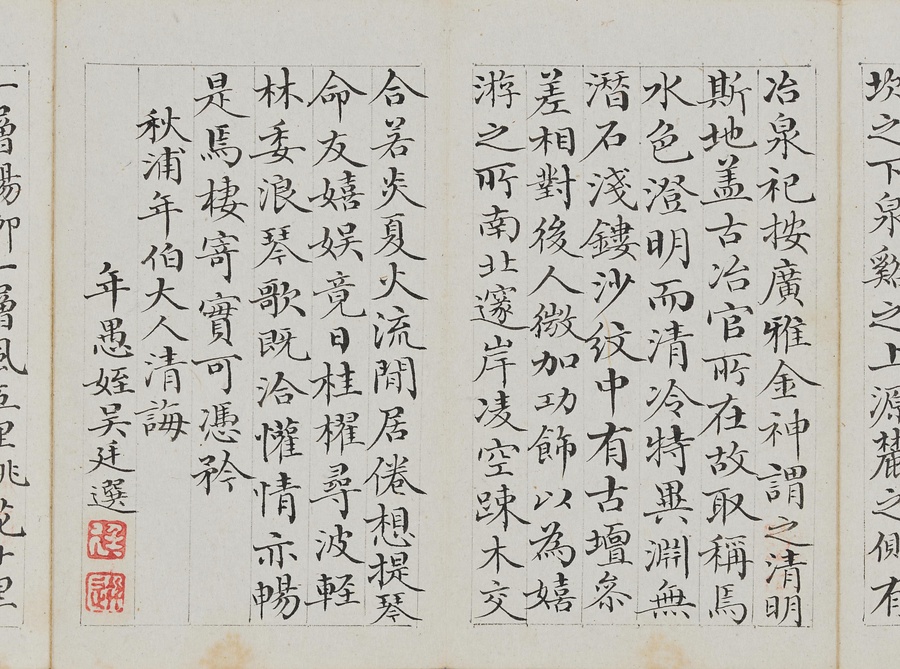 坎之下泉谿之上源麓之側有
冶泉祀按廣雅金神謂之清明
斯地盖古冶官所在故取稱焉
水色澄明而清冷特異淵無
潛石淺鏤沙紋中有古壇叅
差相對後人微加功飾以為嬉
游之所南北邃岸凌空踈木交
合若炎夏火流閒居倦想提琴
命友嬉娱竟日桂櫂尋波輕
林委浪琴歌既洽懽情亦暢
是焉棲寄實可憑矜
秋浦年伯大人清誨
年愚姪吳廷選
廷
選
一層楊柳一層風五里桃花十里